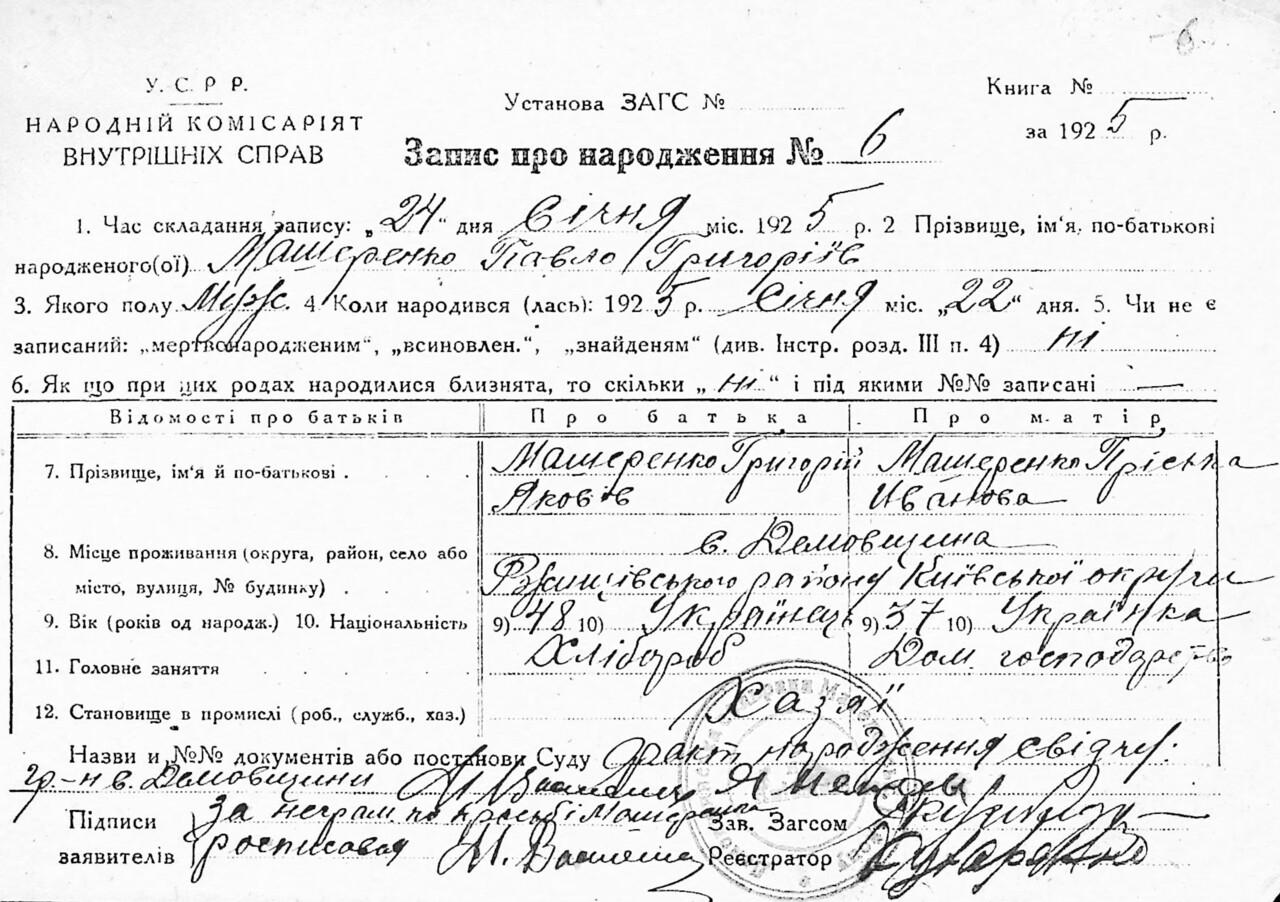 6
У. С. Р Р.
НАРОДНІЙ КОМІСАРІЯТ
ВНУТРІШНІХ СПРАВ
Установа ЗАГС №
Книга №
за 1925 р.
Запис про народження № 6
1. Час складання запису: „24“ дня Січня міс. 1925 р. 2 Прізвище, ім‘я, по-батькові
народженого(ої) Машеренко Павло Григоріїв
3. Якого полу Муж. 4 Коли народився (лась): 1925 р. Січня міс. „22“ дня. 5. Чи не є
записаний: „мертвонародженим“, „всиновлен.“, „знайденям“ (див. Інстр. розд. III п. 4) ні
6. Як що при цих родах народилися близнята, то скільки „ні“ і під якими №№ записані —
Відомості про батьків Про батька Про матір
7. Прізвище, ім‘я й по-батькові . . . . Машеренко Григорій Машеренко Пріська
Яковів Иванова
8. Місце проживання (округа, район, село або в. Демовщина
місто, вулиця, № будинку) . . . . Ржищівського району Київської округи
9. Вік (років од народж.) 10. Національність 9) 48 10) Українець 9) 37 10) Українка
11. Головне заняття . . . . Хлібороб Дом. господарство
12. Становище в промислі (роб., служб., хаз.) Хазяї
Назви и №№ документів або постанови Суду Факт народження свідчу:
гр-н в. Демовщини
Підписи за неграм. по просьбі Машеренка Зав. Загсом
заявителів росписовся Реєстратор